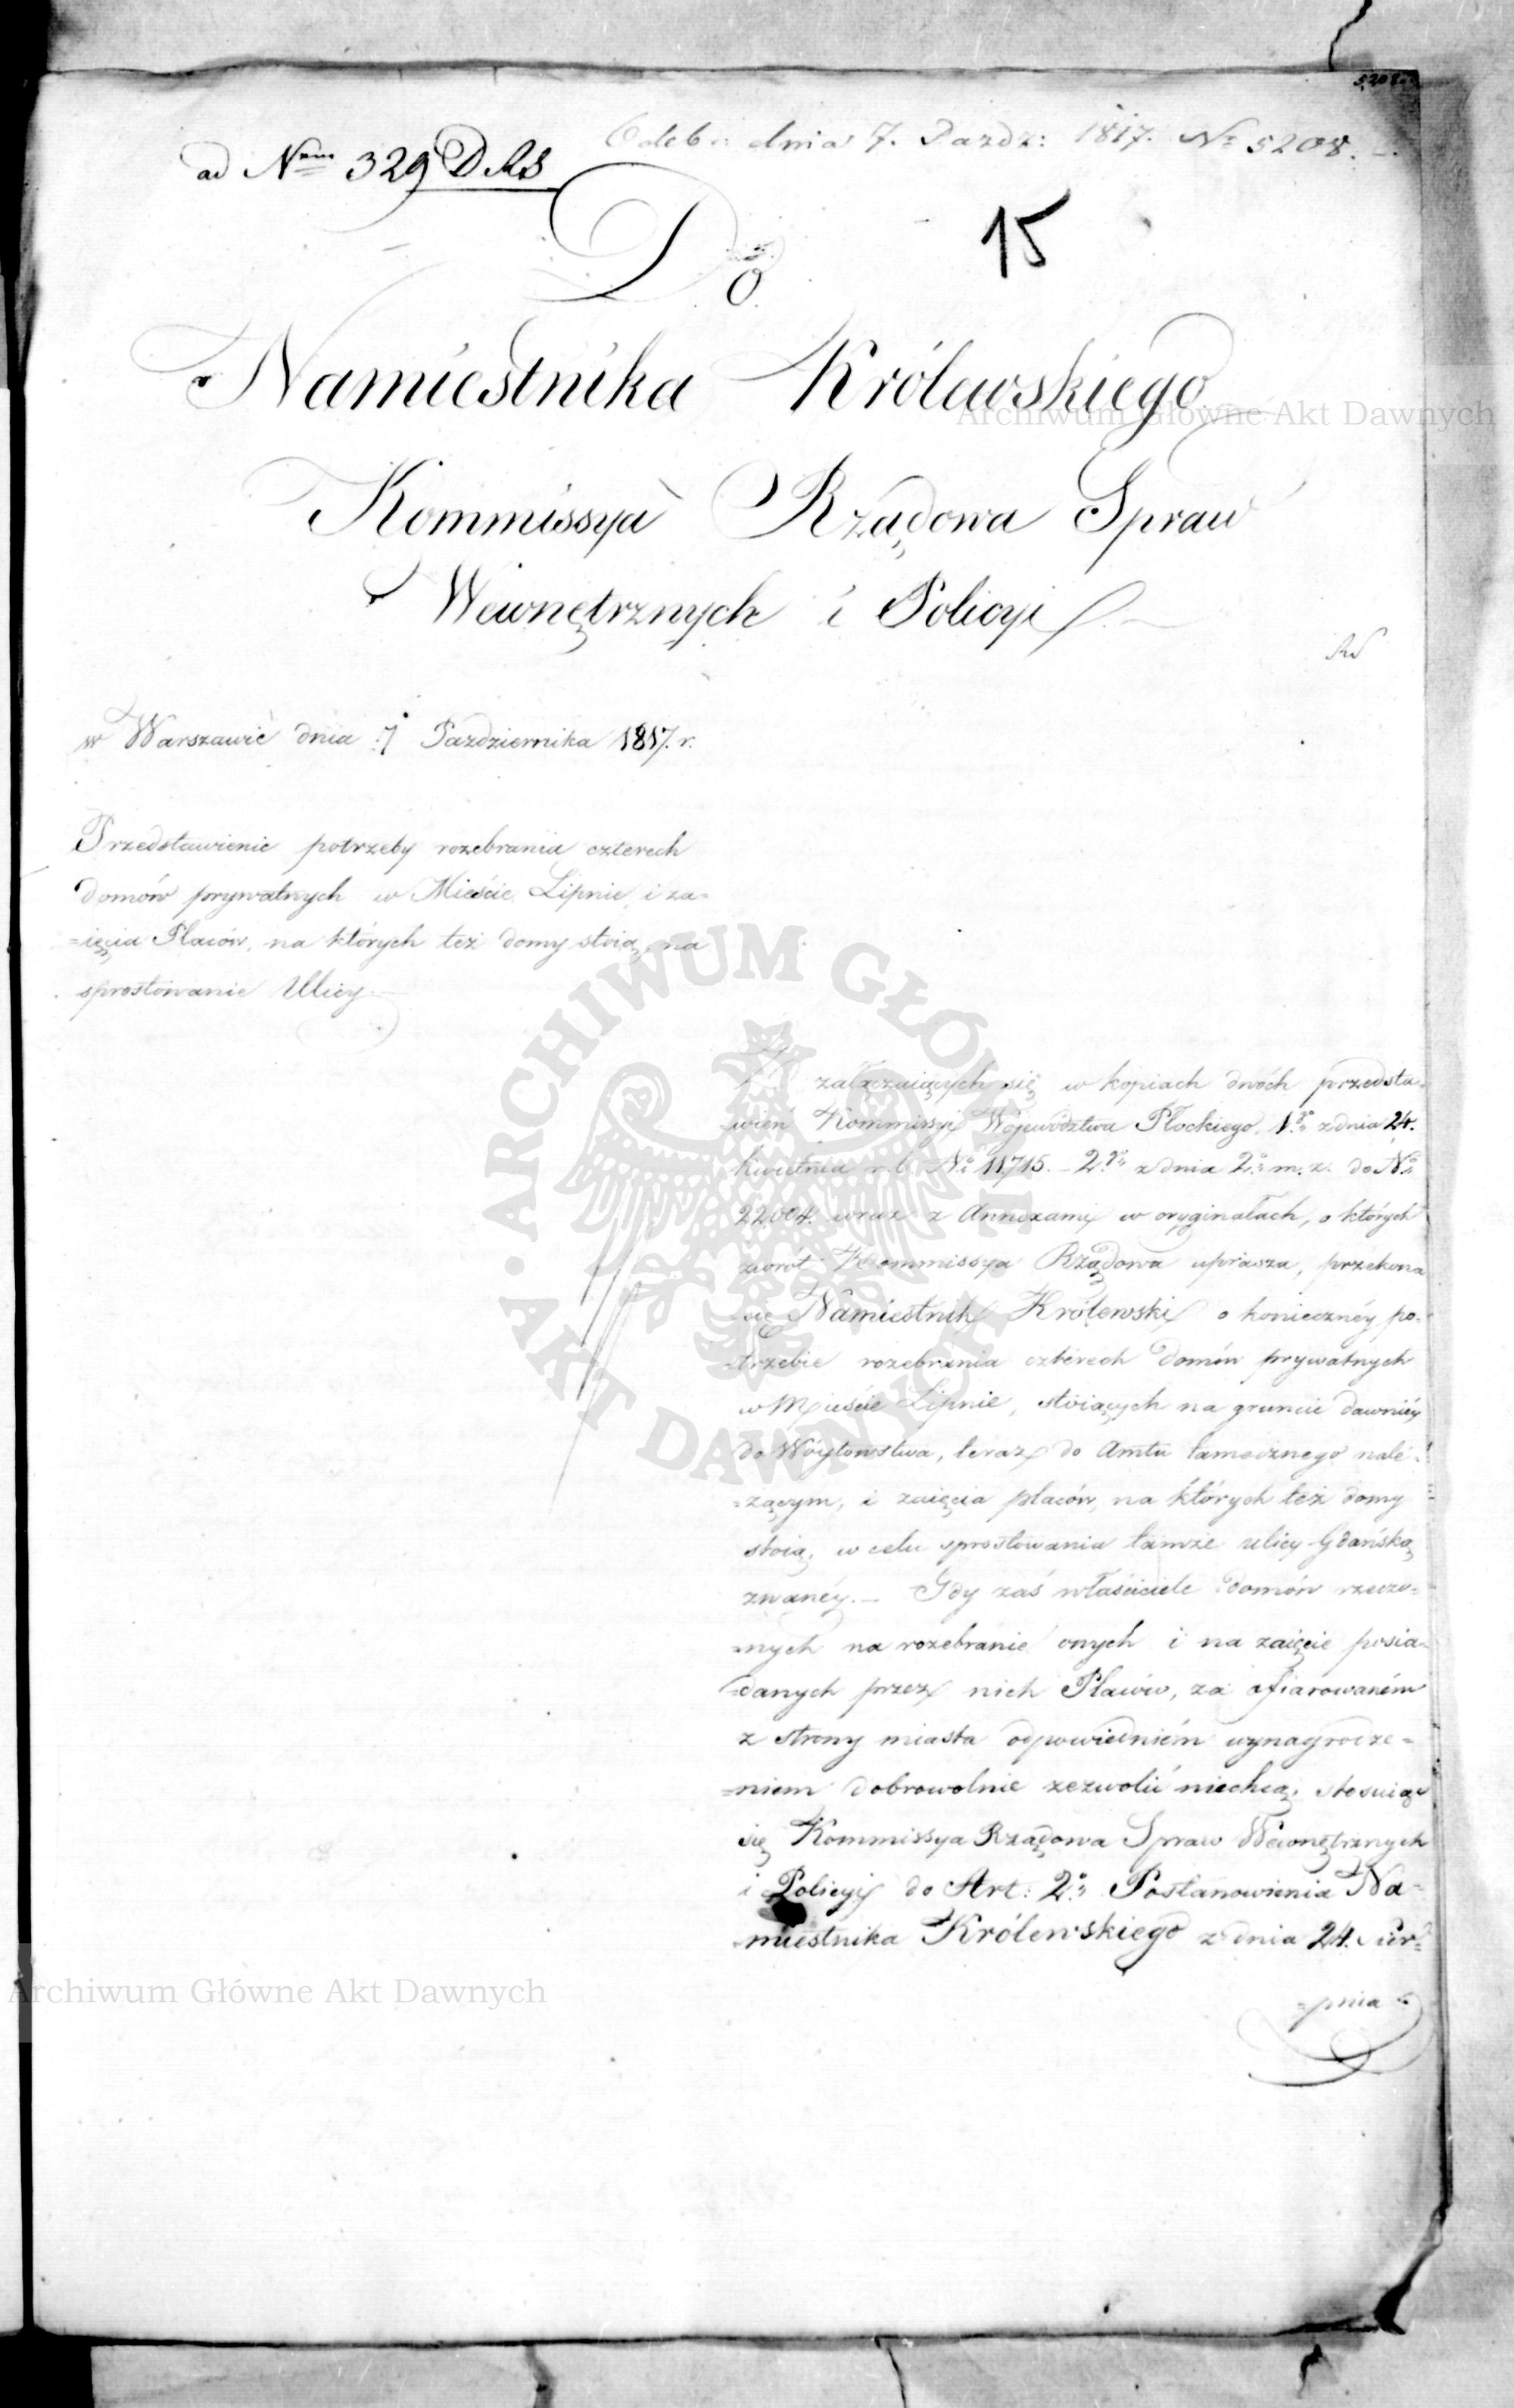 5208
Odebr: dnia 7. Pazdz: 1817. No 5208.
ad Num 329 D AS
15
Do
Namiestnika Królewskiego
Archiwum Główne Akt Dawnych
Kommissya Rządowa Spraw
Wewnętrznych i Policyi
w Warszawie dnia 7 Pazdziernika 1817. r.
Przedstawienie potrzeby rozebrania czterech
domów prywatnych w Mieście Lipnie, i za-
=ięcia Placów, na których też domy stoią, na
sprostowanie Ulicy.
ARCHIWUM GŁÓWNE
AKT DAWNYCH
Z załączaiących się w kopiach dwóch przedsta-
wień Kommissyi Województwa Płockiego, 1o z dnia 24.
kwietnia r. b. No 11,715. – 2o z dnia 2o m. z. do No
22,004. wraz z Annexami w oryginałach, o których
zwrót Kommissya Rządowa uprasza, przekona
się Namiestnik Królewski o konieczney po-
trzebie rozebrania czterech domów prywatnych
w Mieście Lipnie, stoiących na gruncie dawniéy
do Wóytowstwa, teraz do Amtu tamecznego nale-
=żącym, i zaięcia placów, na których też domy
stoią, w celu sprostowania tamże ulicy Gdańską
zwanéy. – Gdy zaś właściciele domów rzeczo-
=nych na rozebranie onych i na zaięcie posia-
=danych przez nich Placów, za ofiarowaném
z strony miasta odpowiedniém wynagrodze-
=niem dobrowolnie zezwolić niechcą, stosuiąc
się Kommissya Rządowa Spraw Wewnętrznych
i Policyi do Art: 2o Postanowienia Na-
miestnika Królewskiego z dnia 24. Sier-
=pnia
Archiwum Główne Akt Dawnych